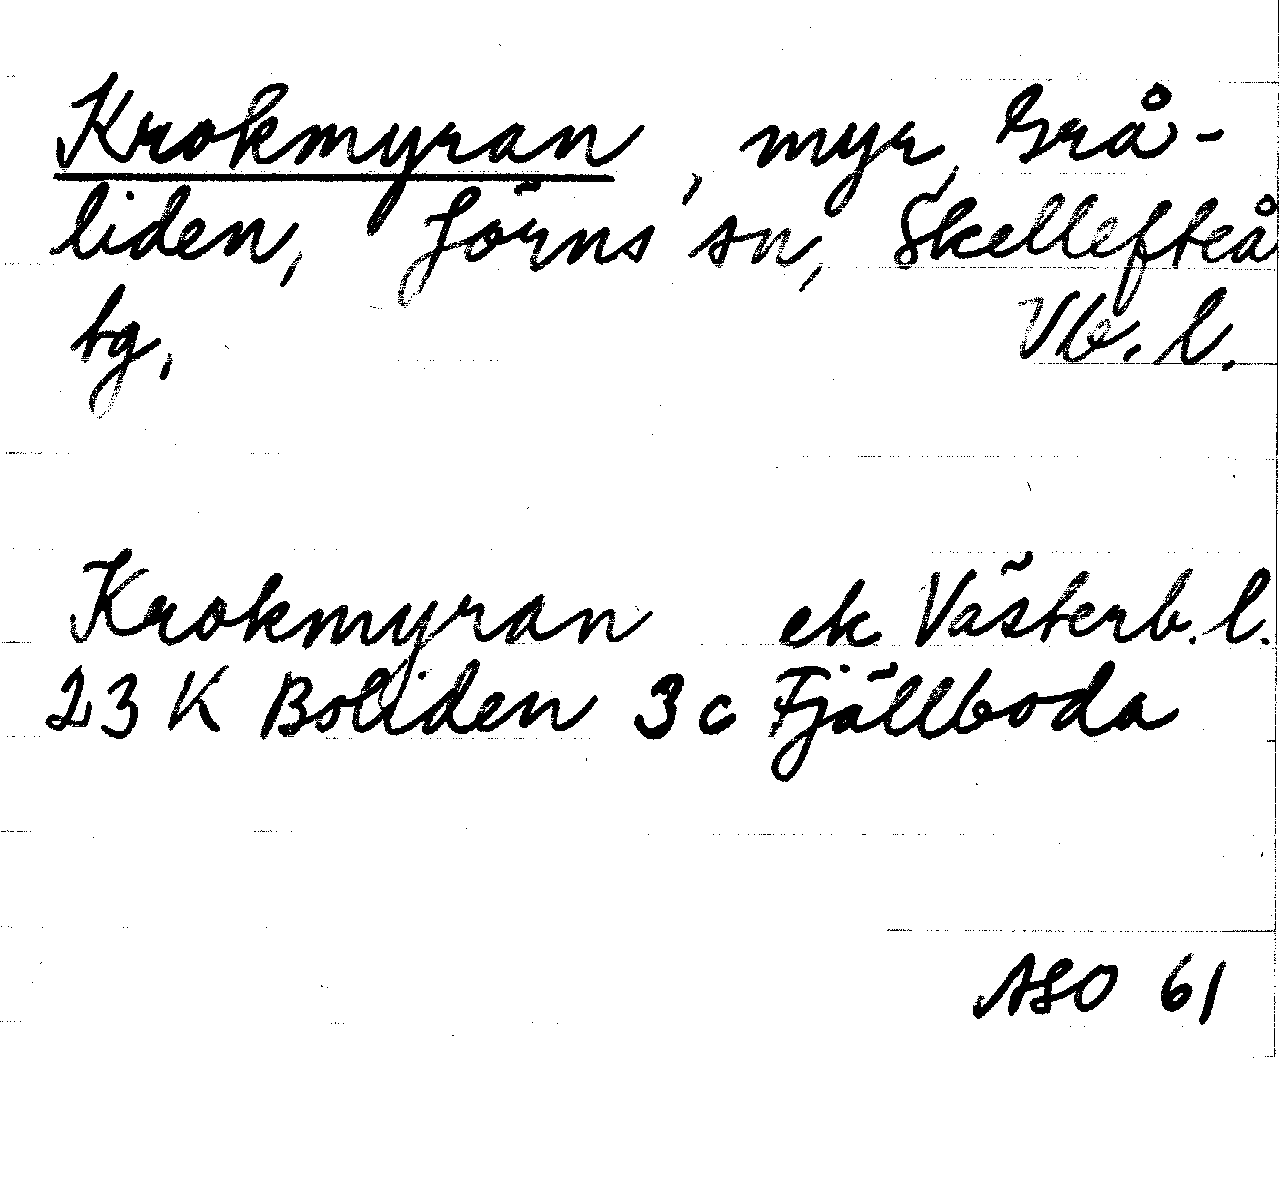 Krokmyran, myr, Grå-
liden, Jörns sn, Skellefteå
tg, Vb. l.
Krokmyran ek Västerb. l.
23 K Boliden 3 c Fjällboda
ASO 61